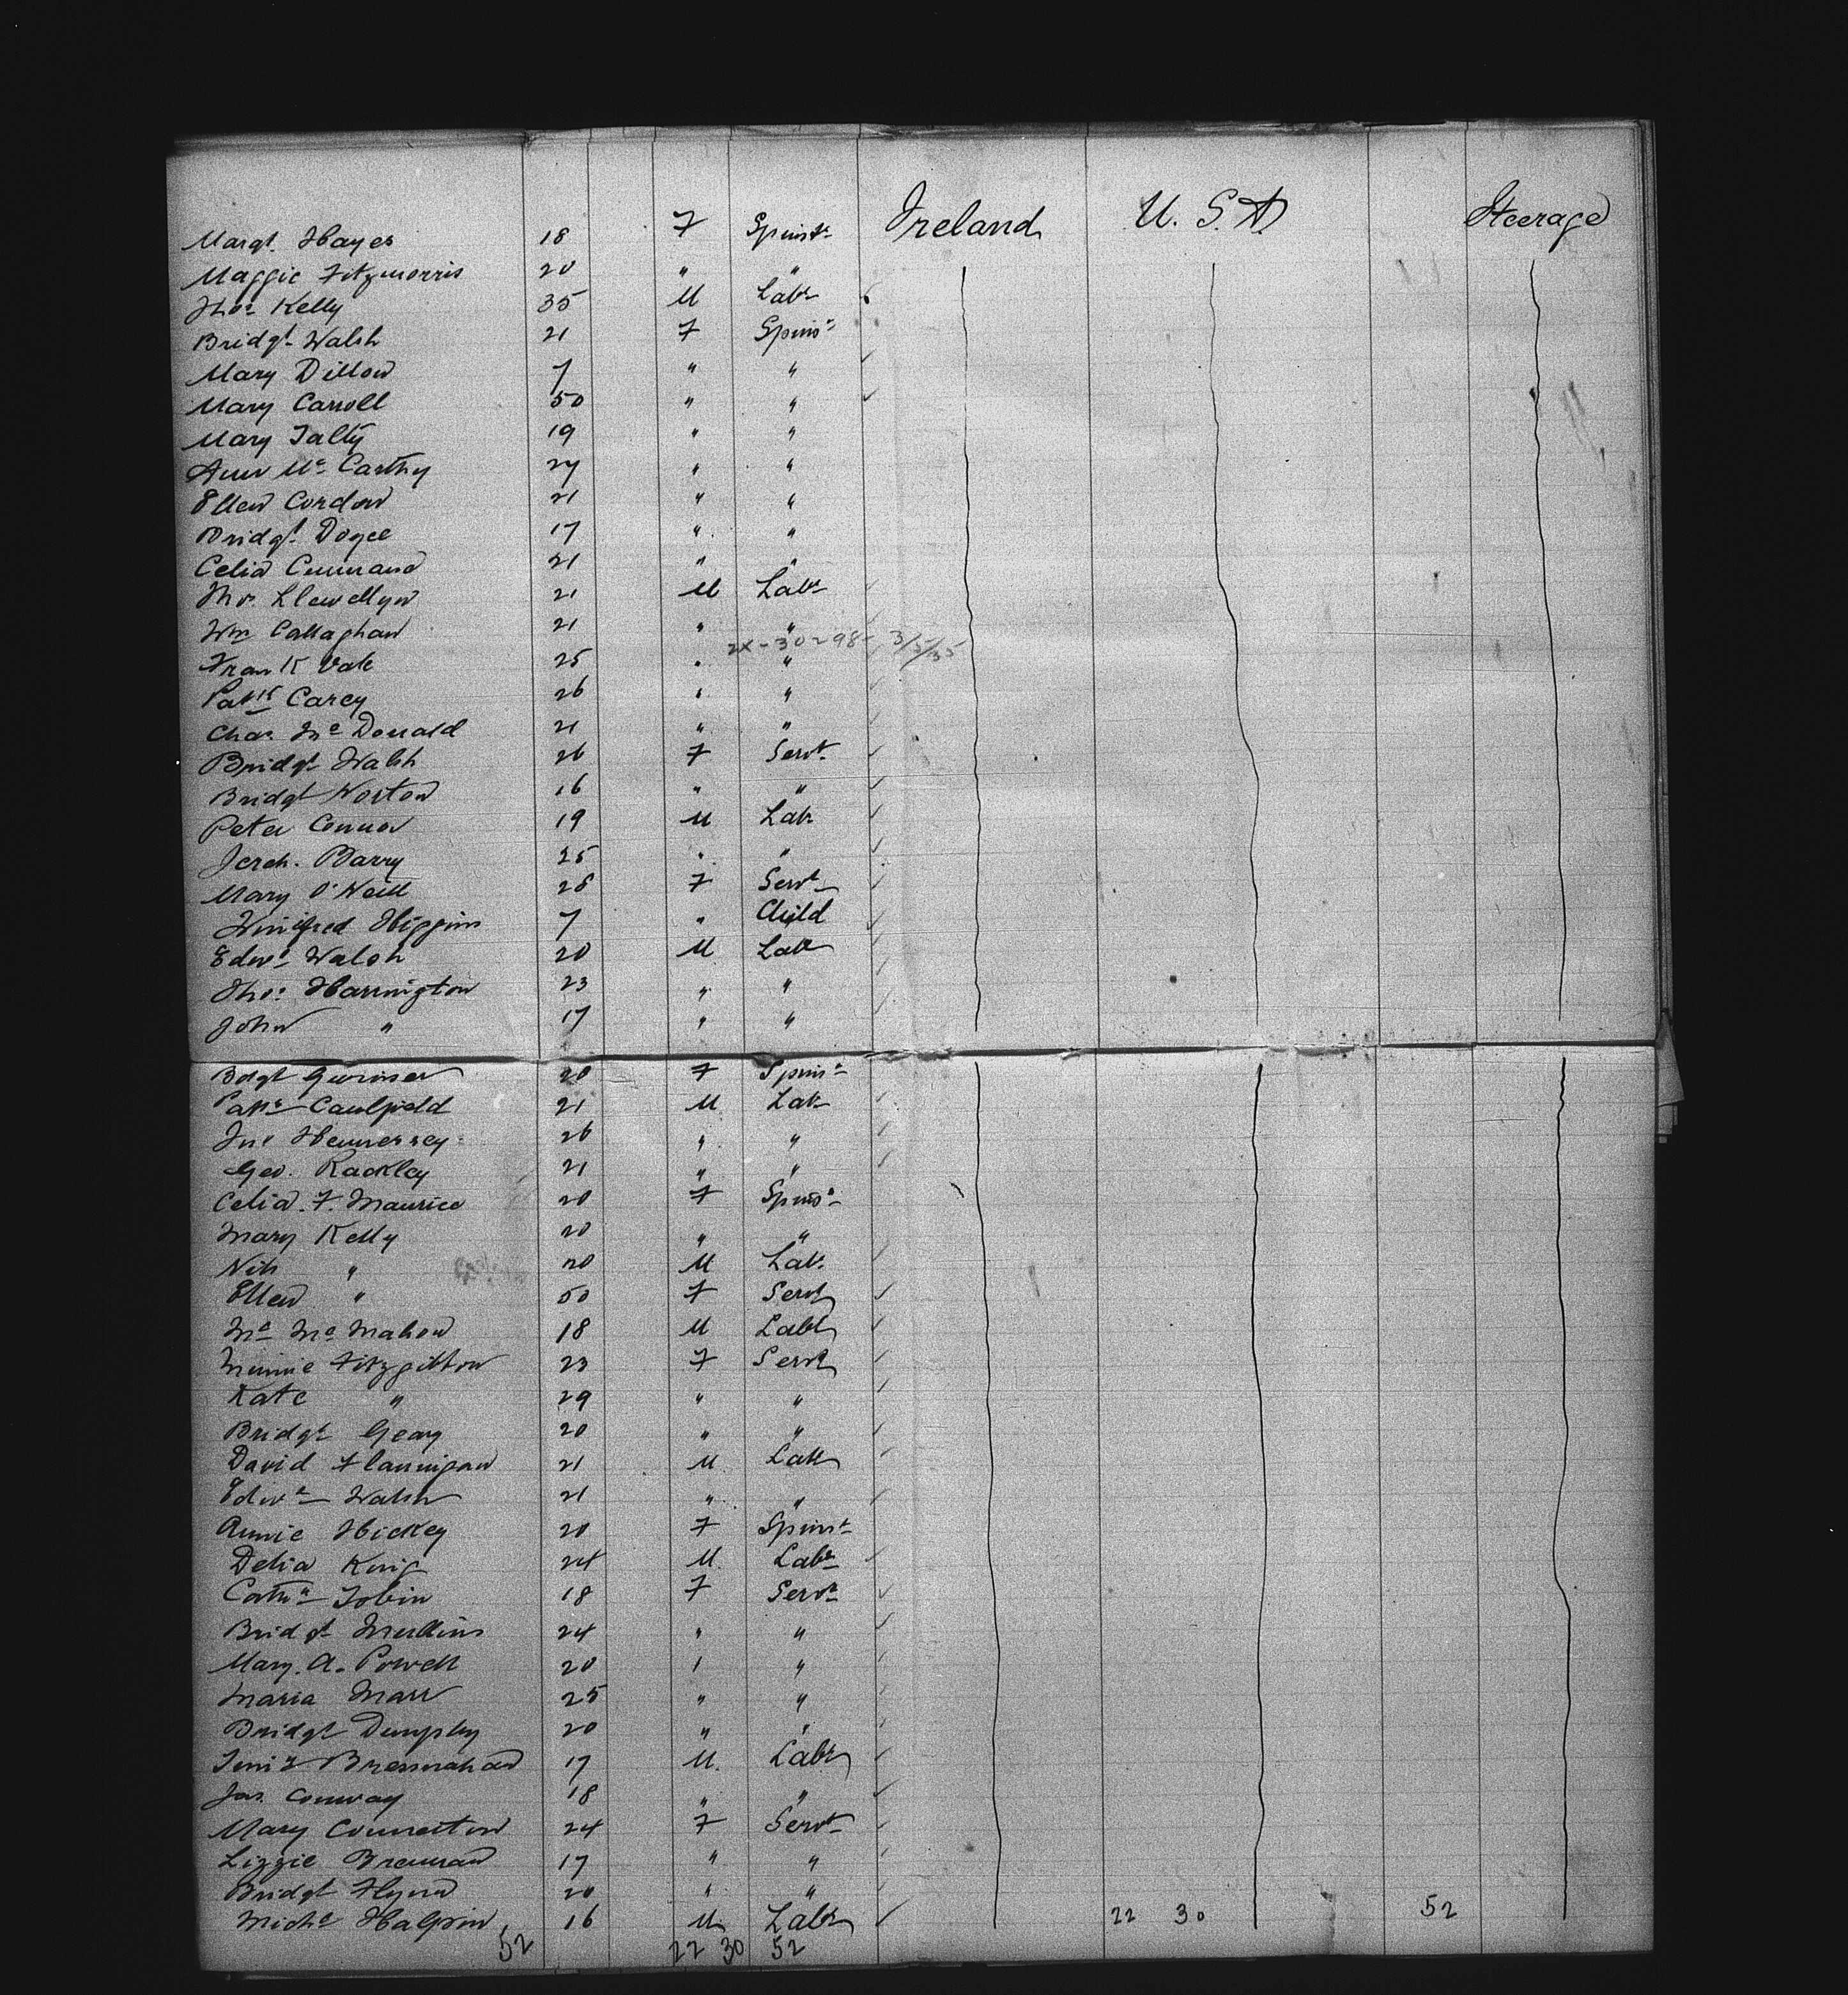 Margt. Hayes 18 F Spinstr Ireland U. S. A Steerage
Maggie Fitzmorris 20 " "
Thos Kelly 35 M Labr
Bridgt Walsh 21 F Spinsr
Mary Dillon 7 " "
Mary Carroll 50 " "
Mary Talty 19 " "
Ann Mc Carthy 27 " "
Ellen Condon 21 " "
Bridgt Doyce 17 " "
Celia 21 " "
Thos. Llewellyn 21 M Labr
Wm Callaghan 21 " "
2X-30298 3/5/35
Frank Vale 25 " "
Patk Carey 26 " "
Chas. Mc Donald 21 " "
Bridgt Walsh 26 F Servt
Bridgt Norton 16 " "
Peter Connor 19 M Labr
Jereh. Barry 25 " "
Mary O'Neill 28 F Servt
Winifred Higgins 7 " Child
Edwd Walsh 20 M Labr
Thos Harrington 23 " "
John " 17 " "
Bdgt 20 F Spinsr
Patk Caulfield 21 M Labr
Jno Hennessey 26 " "
Geo. Rackley 21 " "
Celia F. Maurice 20 F Spinsr
Mary Kelly 20 " "
" 20 M Labr
Ellen " 50 F Servt
Mc Mahon 18 M Labr
Minnie Fitzgibbon 23 F Servt
Kate " 29 " "
Bridgt Geary 20 " "
David Flannigan 21 M Labr
Edwd Walsh 21 " "
Annie Hickey 20 F Spinst
Delia King 24 M Labr
Cathe Tobin 18 F Servt
Bridgt Mullins 24 " "
Mary. A. Powell 20 " "
Maria Marr 25 " "
Bridgt Dunphy 20 " "
Bresnahan 17 M. Labr
Jas. Conway 18 " "
Mary Connerton 24 F Servt
Lizzie Brennan 17 " "
Bridgt Flynn 20 " "
Miche Halpin 16 M Labr 22 30 52
52 22 30 52